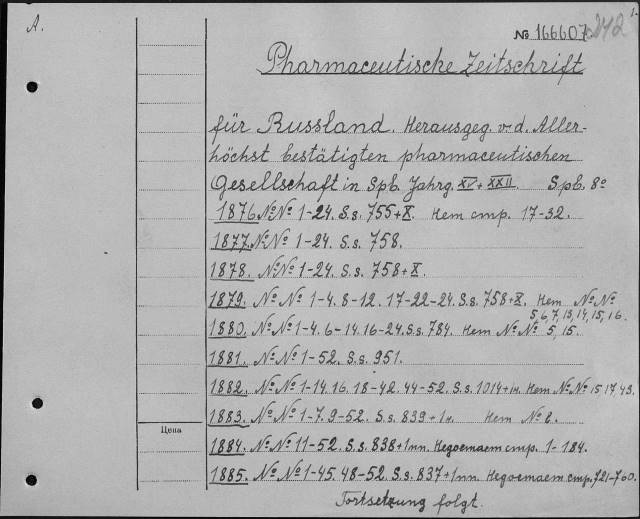 A.
№ 166607.
242
1.
Pharmaceutische Zeitschrift
für Russland. Herausgeg. v. d. Aller-
höchst bestätigten pharmaceutischen
Gesellschaft in Spb. Jahrg. XV + XXII. Spb. 8º
1876 №№ 1-24. S.s. 755+X. Нет стр. 17-32.
1877 №№ 1-24. S.s. 758.
1878. №№ 1-24. S.s. 758+X.
1879. №№ 1-4. 8-12. 17-22-24. S.s. 758+X. Нет №№
5,6,7,13,14,15,16.
1880. №№ 1-4. 6-14. 16-24. S.s. 784. Нет №№ 5,15.
1881. №№ 1-52. S.s. 951.
1882. №№ 1-14. 16. 18-42. 44-52. S.s. 1014+1н. Нет №№ 15.17.43.
1883. №№ 1-7. 9-52. S.s. 839+1н. Нет № 8.
Цена
1884. №№ 11-52. S.s. 838+1нн. Недостает стр. 1-184.
1885. №№ 1-45. 48-52. S.s. 837+1нн. Недостает стр. 721-760.
Fortsetzung folgt.